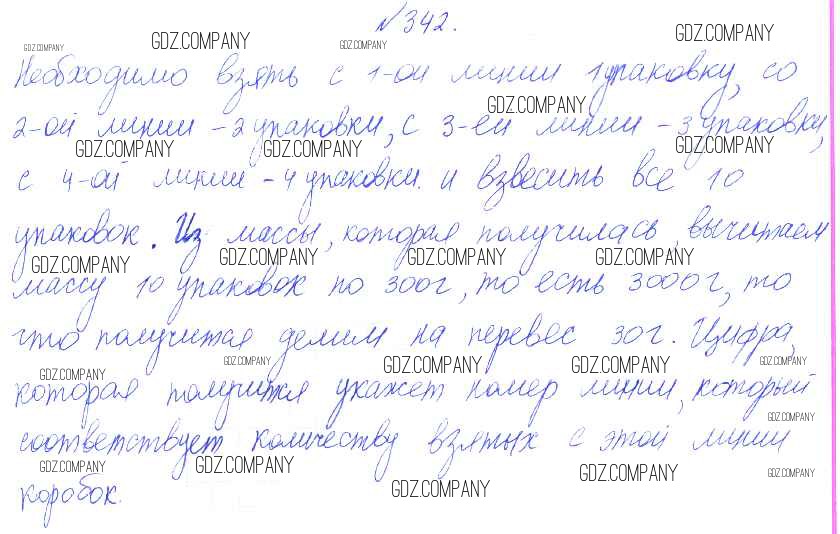 №342.
Необходимо взять с 1-ой линии 1 упаковку, со
2-ой линии – 2 упаковки, с 3-ей линии – 3 упаковки,
с 4-ой линии – 4 упаковки. и взвесить все 10
упаковок. Из массы, которая получилась, вычитаем
массу 10 упаковок по 300г, то есть 3000г, то
что получится делим на перевес 30г. Цифра,
которая получится укажет номер линии, который
соответствует количеству взятых с этой линии
коробок.
GDZ.COMPANY GDZ.COMPANY GDZ.COMPANY GDZ.COMPANY
GDZ.COMPANY
GDZ.COMPANY GDZ.COMPANY GDZ.COMPANY
GDZ.COMPANY GDZ.COMPANY GDZ.COMPANY GDZ.COMPANY
GDZ.COMPANY GDZ.COMPANY GDZ.COMPANY GDZ.COMPANY GDZ.COMPANY
GDZ.COMPANY
GDZ.COMPANY GDZ.COMPANY GDZ.COMPANY GDZ.COMPANY
GDZ.COMPANY